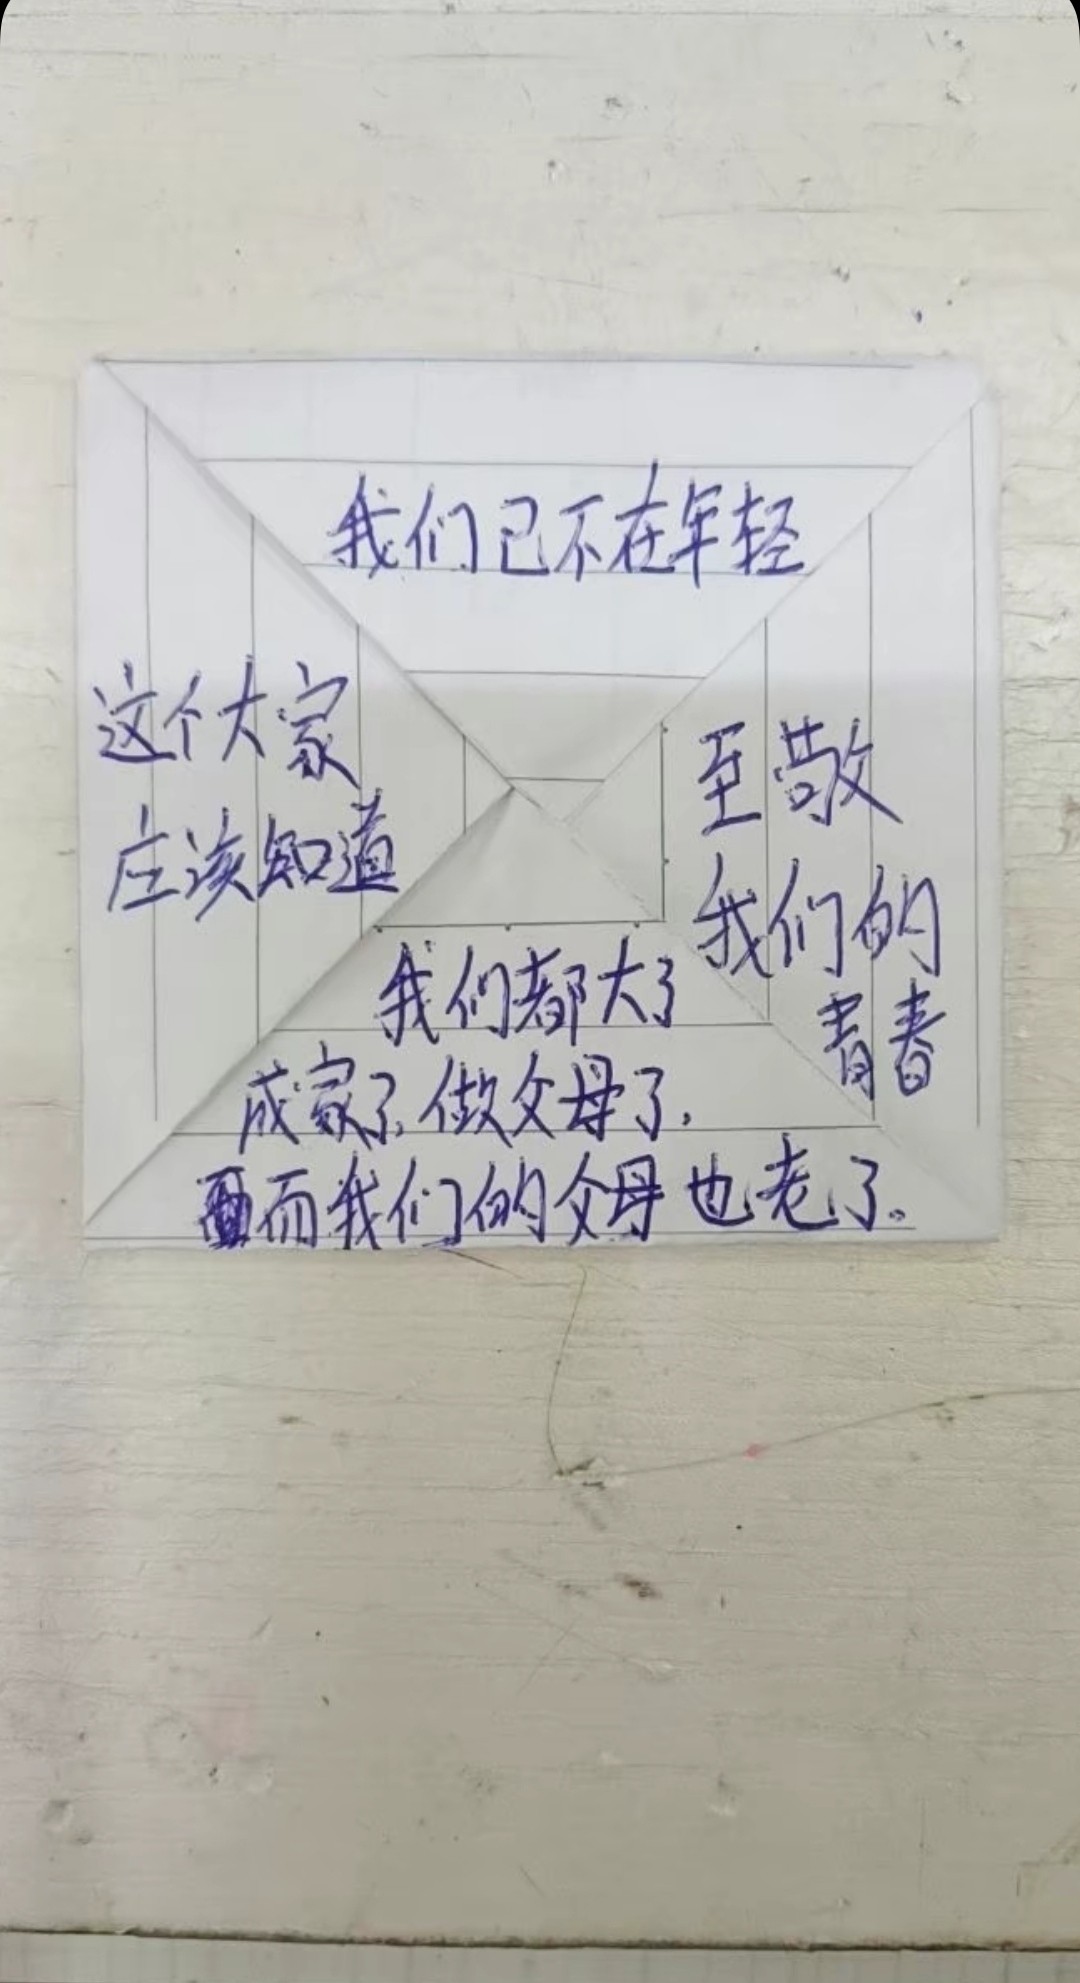 我们已不在年轻
这个大家
应该知道
至敬
我们的
青春
我们都大了
成家了,做父母了.
而我们的父母也老了。